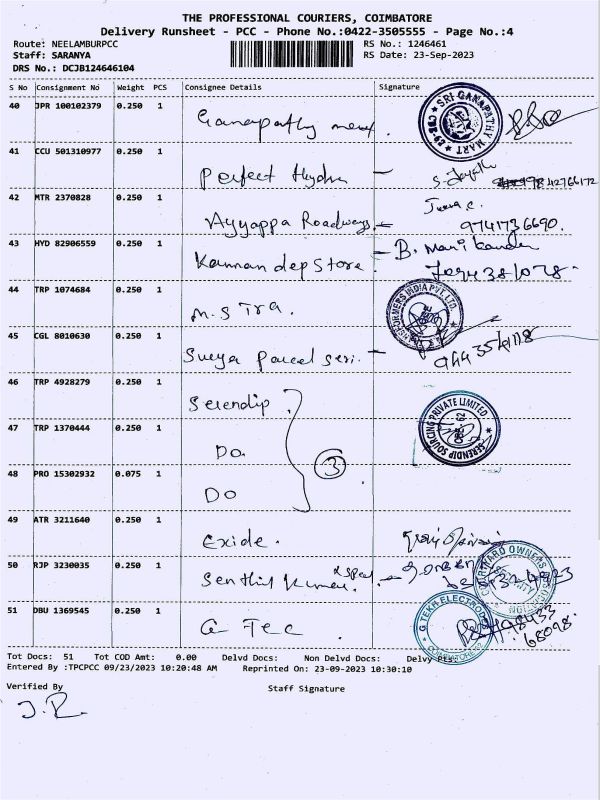 THE PROFESSIONAL COURIERS, COIMBATORE
Delivery Runsheet - PCC - Phone No.:0422-3505555 - Page No.:4
Route: NEELAMBURPCC RS No.: 1246461
Staff: SARANYA RS Date: 23-Sep-2023
DRS No.: DCJB124646104
S No Consignment No Weight PCS Consignee Details Signature
40 JPR 100102379 0.250 1
Ganapathy SRI GANAPATHY MART
41 CCU 501310977 0.250 1
Perfect Hydra - 9842766172
42 MTR 2370828 0.250 1
Ayyappa Roadways - 9741736690.
43 HYD 82906559 0.250 1
Kannan dep Store. - B. Manikandan
44 TRP 1074684 0.250 1
M.S Tra. FORMERS INDIA PVT. LTD.
45 CGL 8010630 0.250 1
Surya Parcel Seri. -
46 TRP 4928279 0.250 1
Serendip. SERENDIP SOURCING PRIVATE LIMITED
47 TRP 1370444 0.250 1
Do 3
48 PRO 15302932 0.075 1
Do
49 ATR 3211640 0.250 1
Exide.
50 RJP 3230035 0.250 1
Senthil Kumar. OWNERS SECURITY
51 DBU 1369545 0.250 1
G Tec. G.TEKH ELECTRODES COIMBATORE 98433 68098.
Tot Docs: 51 Tot COD Amt: 0.00 Delvd Docs: Non Delvd Docs: Delvy Pts:
Entered By :TPCPCC 09/23/2023 10:20:48 AM Reprinted On : 23-09-2023 10:30:10
Verified By Staff Signature
J.R.